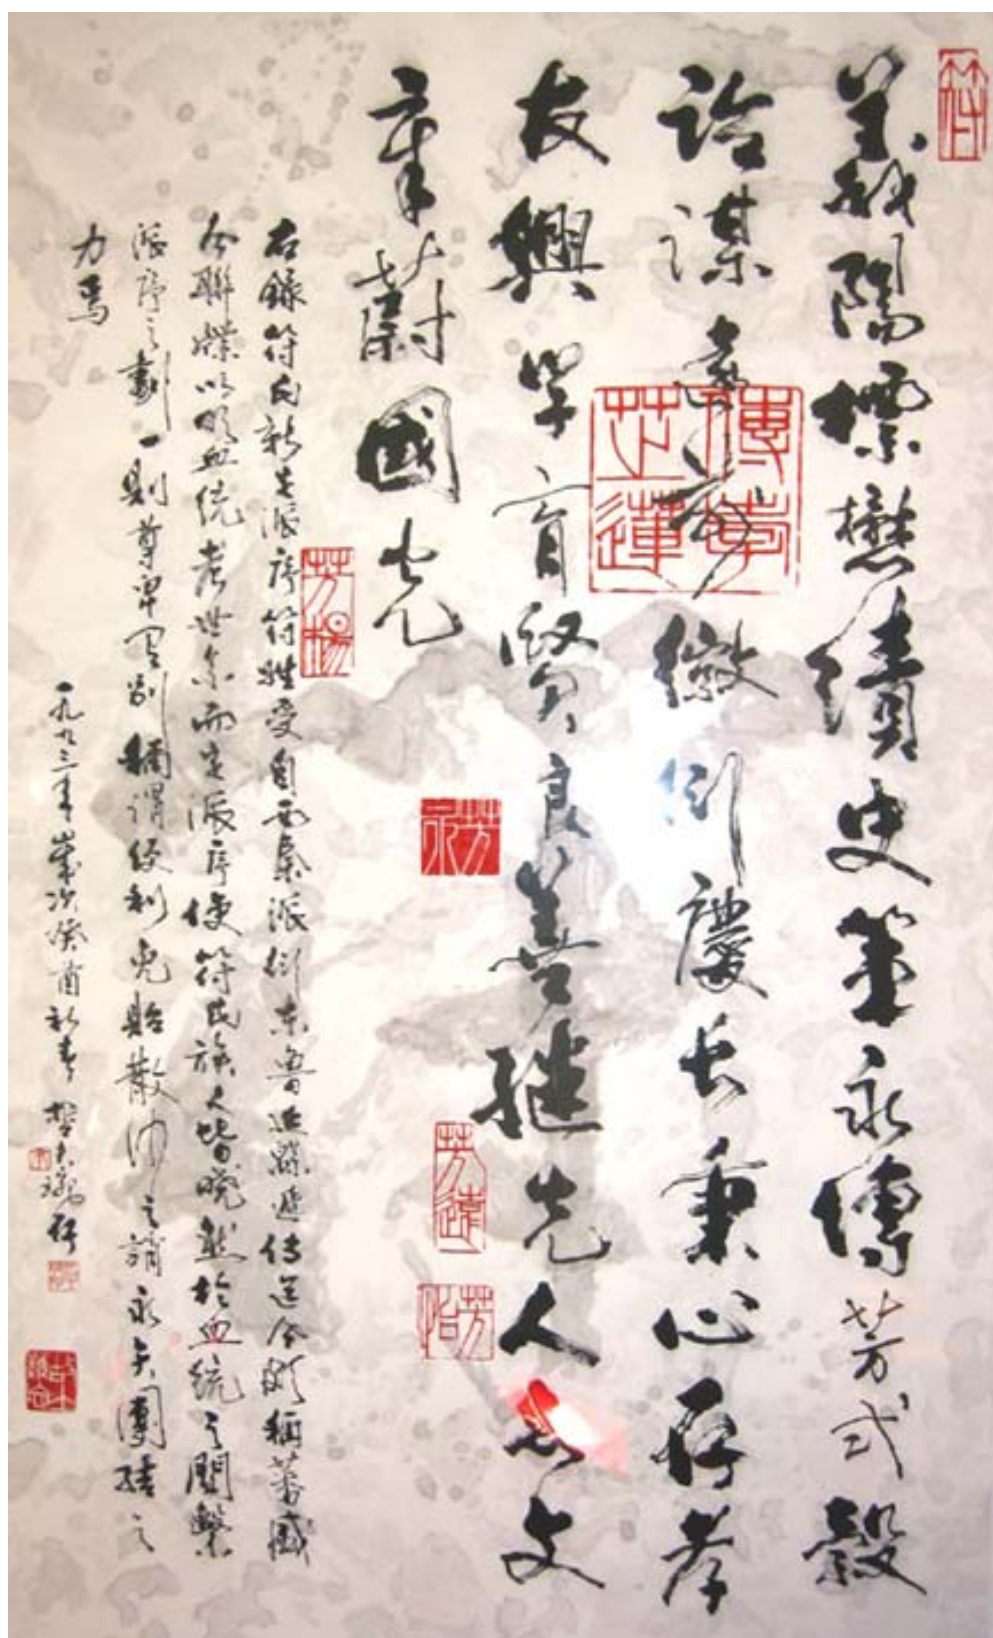 符
陽標懋績史筆永傳芳式穀
詒謀徽衍慶長秉心存孝
友興學育賢良善繼先人志文
章蔚國光
右錄符氏新派序符姓受自西秦派衍東魯遞傳迄今頗稱蕃盛
今聯牒以明血統考世系而定派序使符氏族人皆曉然於血統之關繫
派序之劃一則尊卑有別稱謂便利免貽散沙之誚永矢團結之
力焉
一九九三年歲次癸酉初春
芳楊
芳遠
芳怡